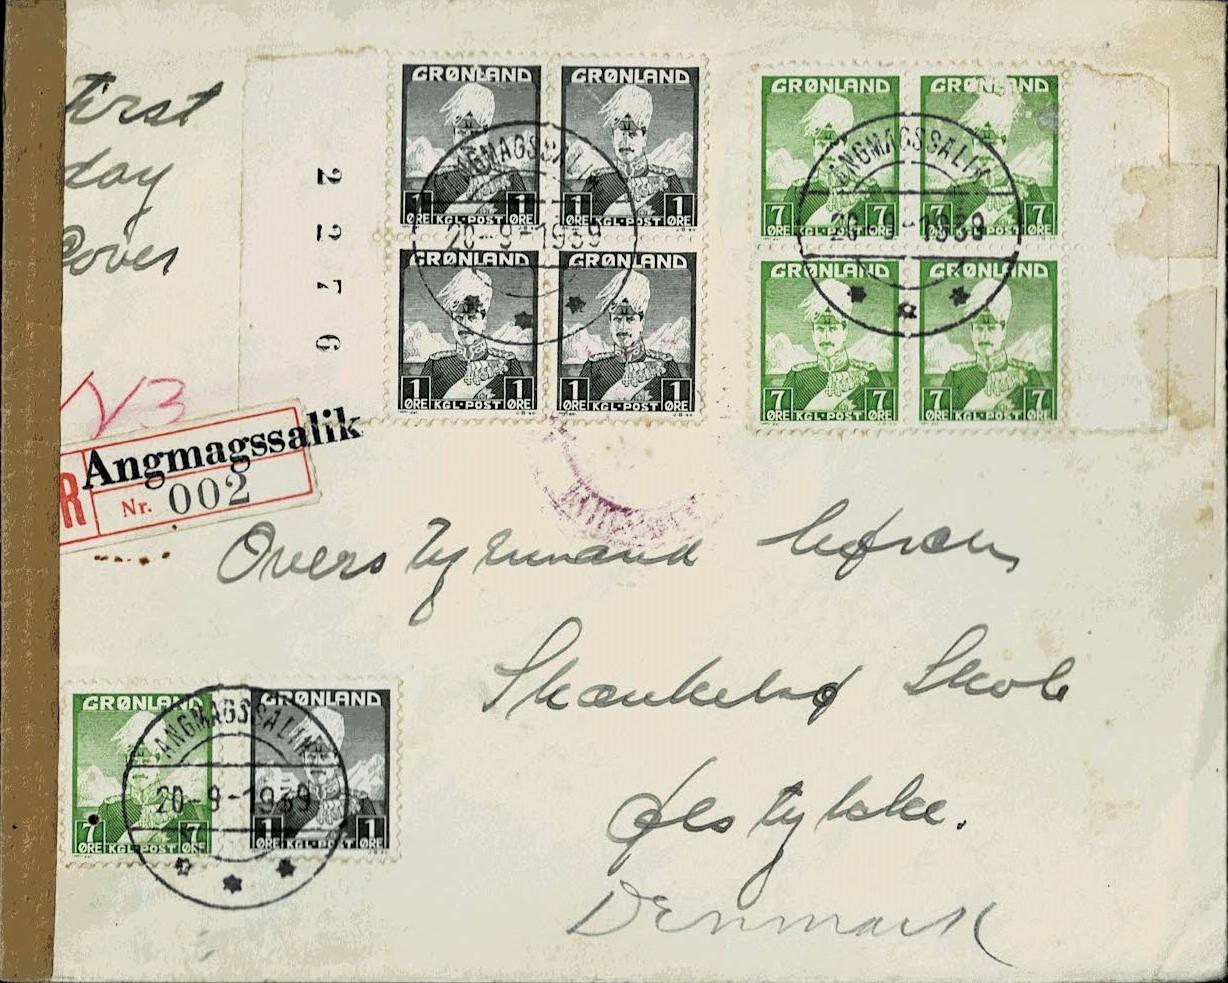 First
day
Cover
GRØNLAND GRØNLAND
1 ØRE KGL·POST 1 ØRE 1 ØRE KGL·POST 1 ØRE
GRØNLAND GRØNLAND
1 ØRE KGL·POST 1 ØRE 1 ØRE KGL·POST 1 ØRE
ANGMAGSSALIK
20-9-1939
2 2 7 6
GRØNLAND GRØNLAND
7 ØRE KGL·POST 7 ØRE 7 ØRE KGL·POST 7 ØRE
GRØNLAND GRØNLAND
7 ØRE KGL·POST 7 ØRE 7 ØRE KGL·POST 7 ØRE
ANGMAGSSALIK
20-9-1939
N3
R Angmagssalik
Nr. 002
Overs
Ølstykke.
Denmark
GRØNLAND GRØNLAND
7 ØRE KGL·POST 7 ØRE 1 ØRE KGL·POST 1 ØRE
ANGMAGSSALIK
20-9-1939